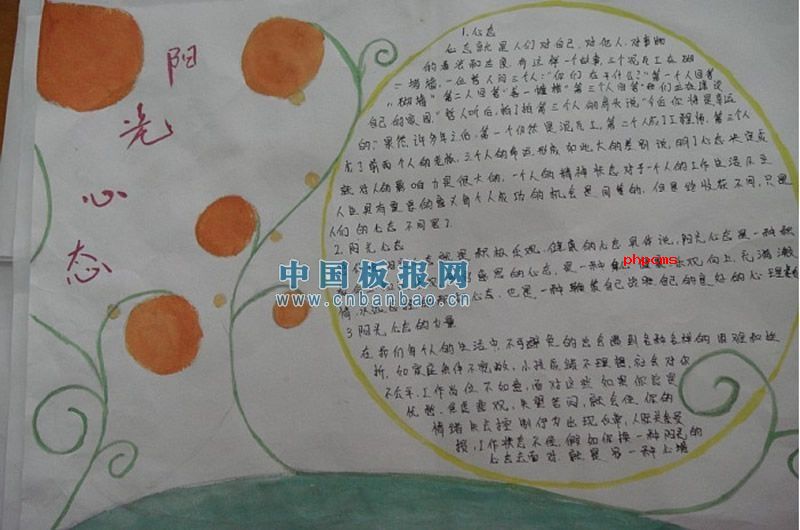 阳光心态
1.心态
心态就是人们对自己、对他人、对事物
的看法和态度。有这样一个故事,三个泥瓦工在砌
一堵墙,一位哲人问三个人:"你们在干什么?"第一个人回答
"砌墙"第二人回答"盖一幢楼"第三个人回答"我们正在建设
自己的家园"哲人听后,拍了拍第三个人的肩头说"今后你将是幸运
的:"果然,许多年之后,第一个仍然是泥瓦工,第二个成了工程师,第三个人
成了前两个人的老板,三个人的命运,形成如此大的差别说明了心态决定成
就对人的影响力是很大的,一个人的精神状态对于一个人的工作生活及至
人生具有重要的意义每个人成功的机会是同等的,但是收获不同,只是
人们的心态不同罢了.
2.阳光心态
就是积极乐观、健康的心态具体说,阳光心态是一种积
感恩的心态,是一种 乐观向上,充满激
情, 心态,也是一种 自己 自己的良好的心理素
3.阳光心态的力量
在我们每个人的生活中,不可避免的出会遇到各种各样的困难和挫
折,如家庭条件不宽裕,小孩成绩不理想,社会对你
不公平,工作岗位不如意,面对这些如果你总是
忧愁、焦虑悲观、失望苦闷,就会使你的
情绪失去控制行为出现反常,人际关系受
损,工作状态不佳,假如你换一种阳光的
心态去面对,就是另一种心境
中国板报网
www.cnbanbao.cn
phpcms